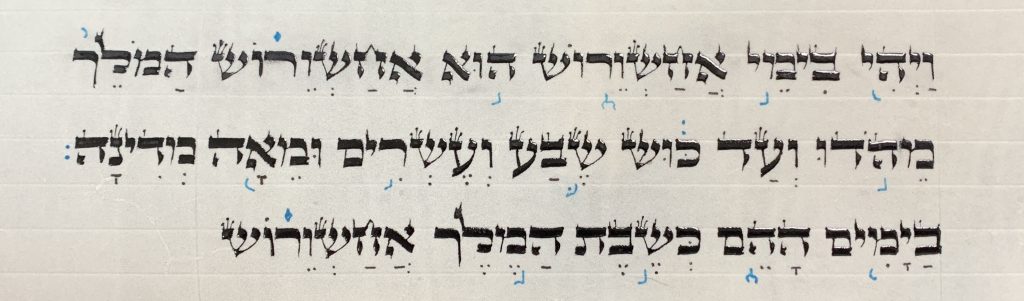 וַיְהִ֖י בִּימֵ֣י אֲחַשְׁוֵר֑וֹשׁ ה֣וּא אֲחַשְׁוֵר֗וֹשׁ הַמֹּלֵךְ֙
מֵהֹ֣דּוּ וְעַד כּ֔וּשׁ שֶׁ֛בַע וְעֶשְׂרִ֥ים וּמֵאָ֖ה מְדִינָה׃
בַּיָּמִ֖ים הָהֵ֑ם כְּשֶׁ֣בֶת הַמֶּ֣לֶךְ אֲחַשְׁוֵר֗וֹשׁ